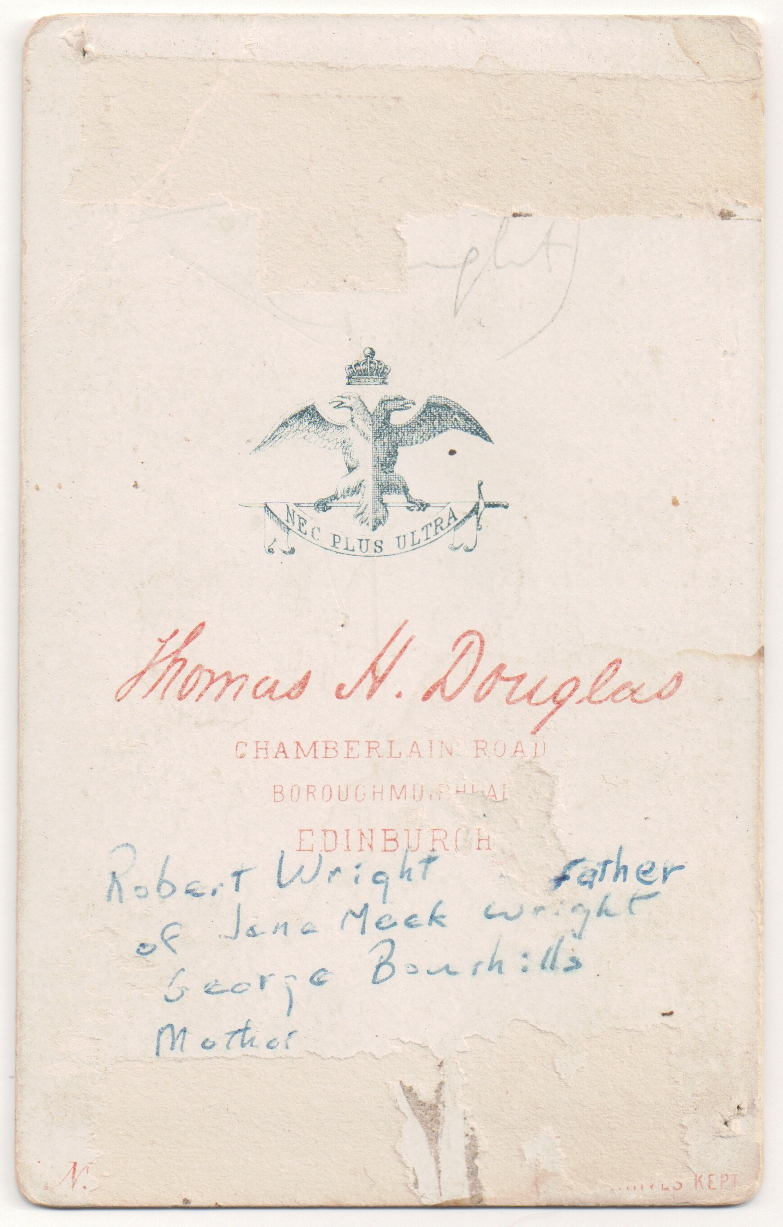 NEC PLUS ULTRA
Thomas H. Douglas
CHAMBERLAIN ROAD
EDINBURGH
Robert Wright father
of Jane Meek Wright
George Bourhills
Mother
N.
KEPT